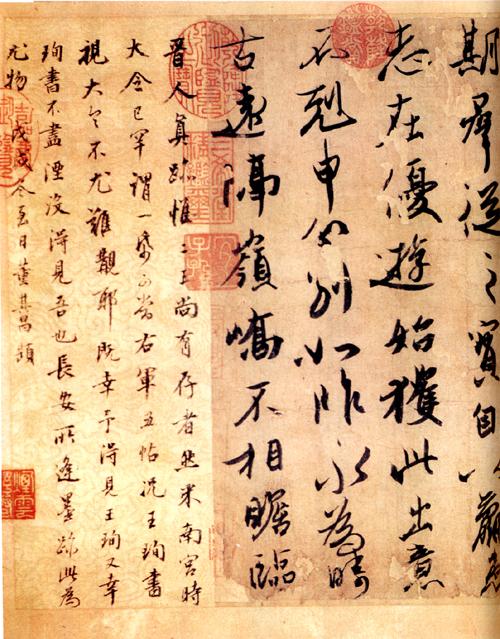 期群從之寶自以羸患
志在優遊始獲此出意
不剋申分別如昨永為疇
古遠隔嶺嶠不相瞻臨
晉人真跡惟二王尚有存者然米南宮時
大令已罕謂一紙可當右軍五帖況王珣書
視大令不尤難覯耶既幸予得見王珣又幸
珣書不盡湮沒得見吾也長安所逢墨跡此為
尤物戊戌冬至日董其昌題